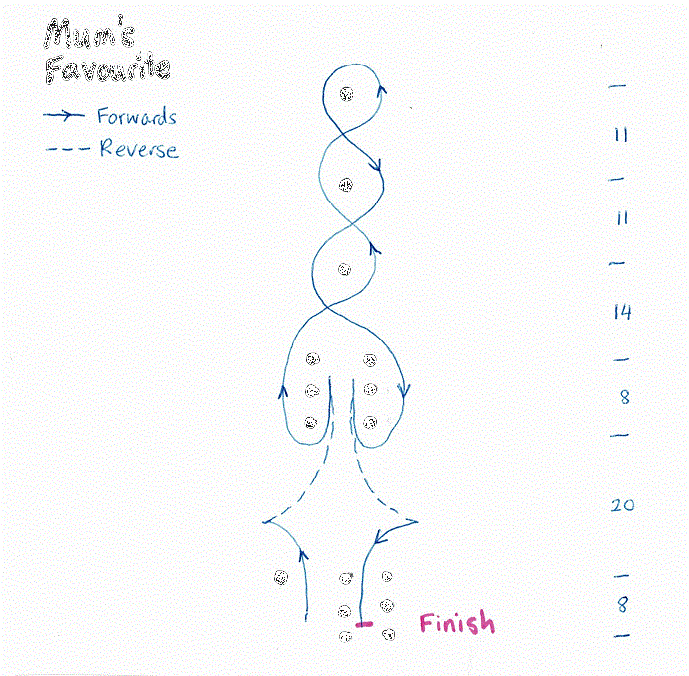 Mum's
Favourite
Forwards
Reverse
11
11
14
8
20
8
Finish